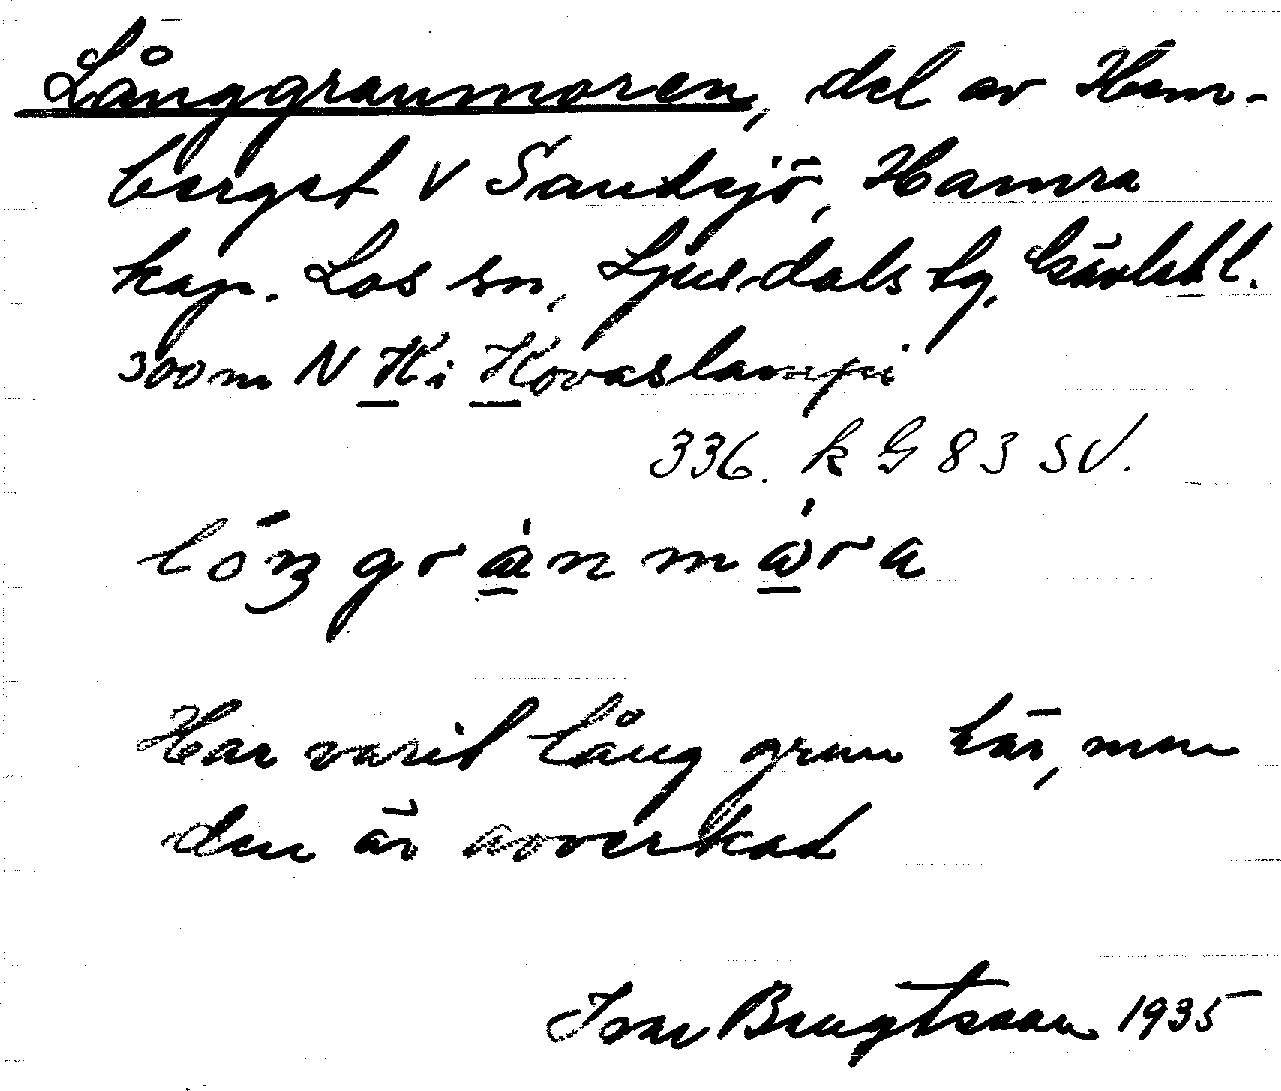 Långgranmoren, del av Hem-
berget V Sandsjö, Hamra
kap. Los sn, Ljusdals tg, Gävleb l.
300 m N K i Kovaslampi
336. k G 83 SV.
Har varit lång gran här, men
den är avverkad
Ivar Bengtsson 1935